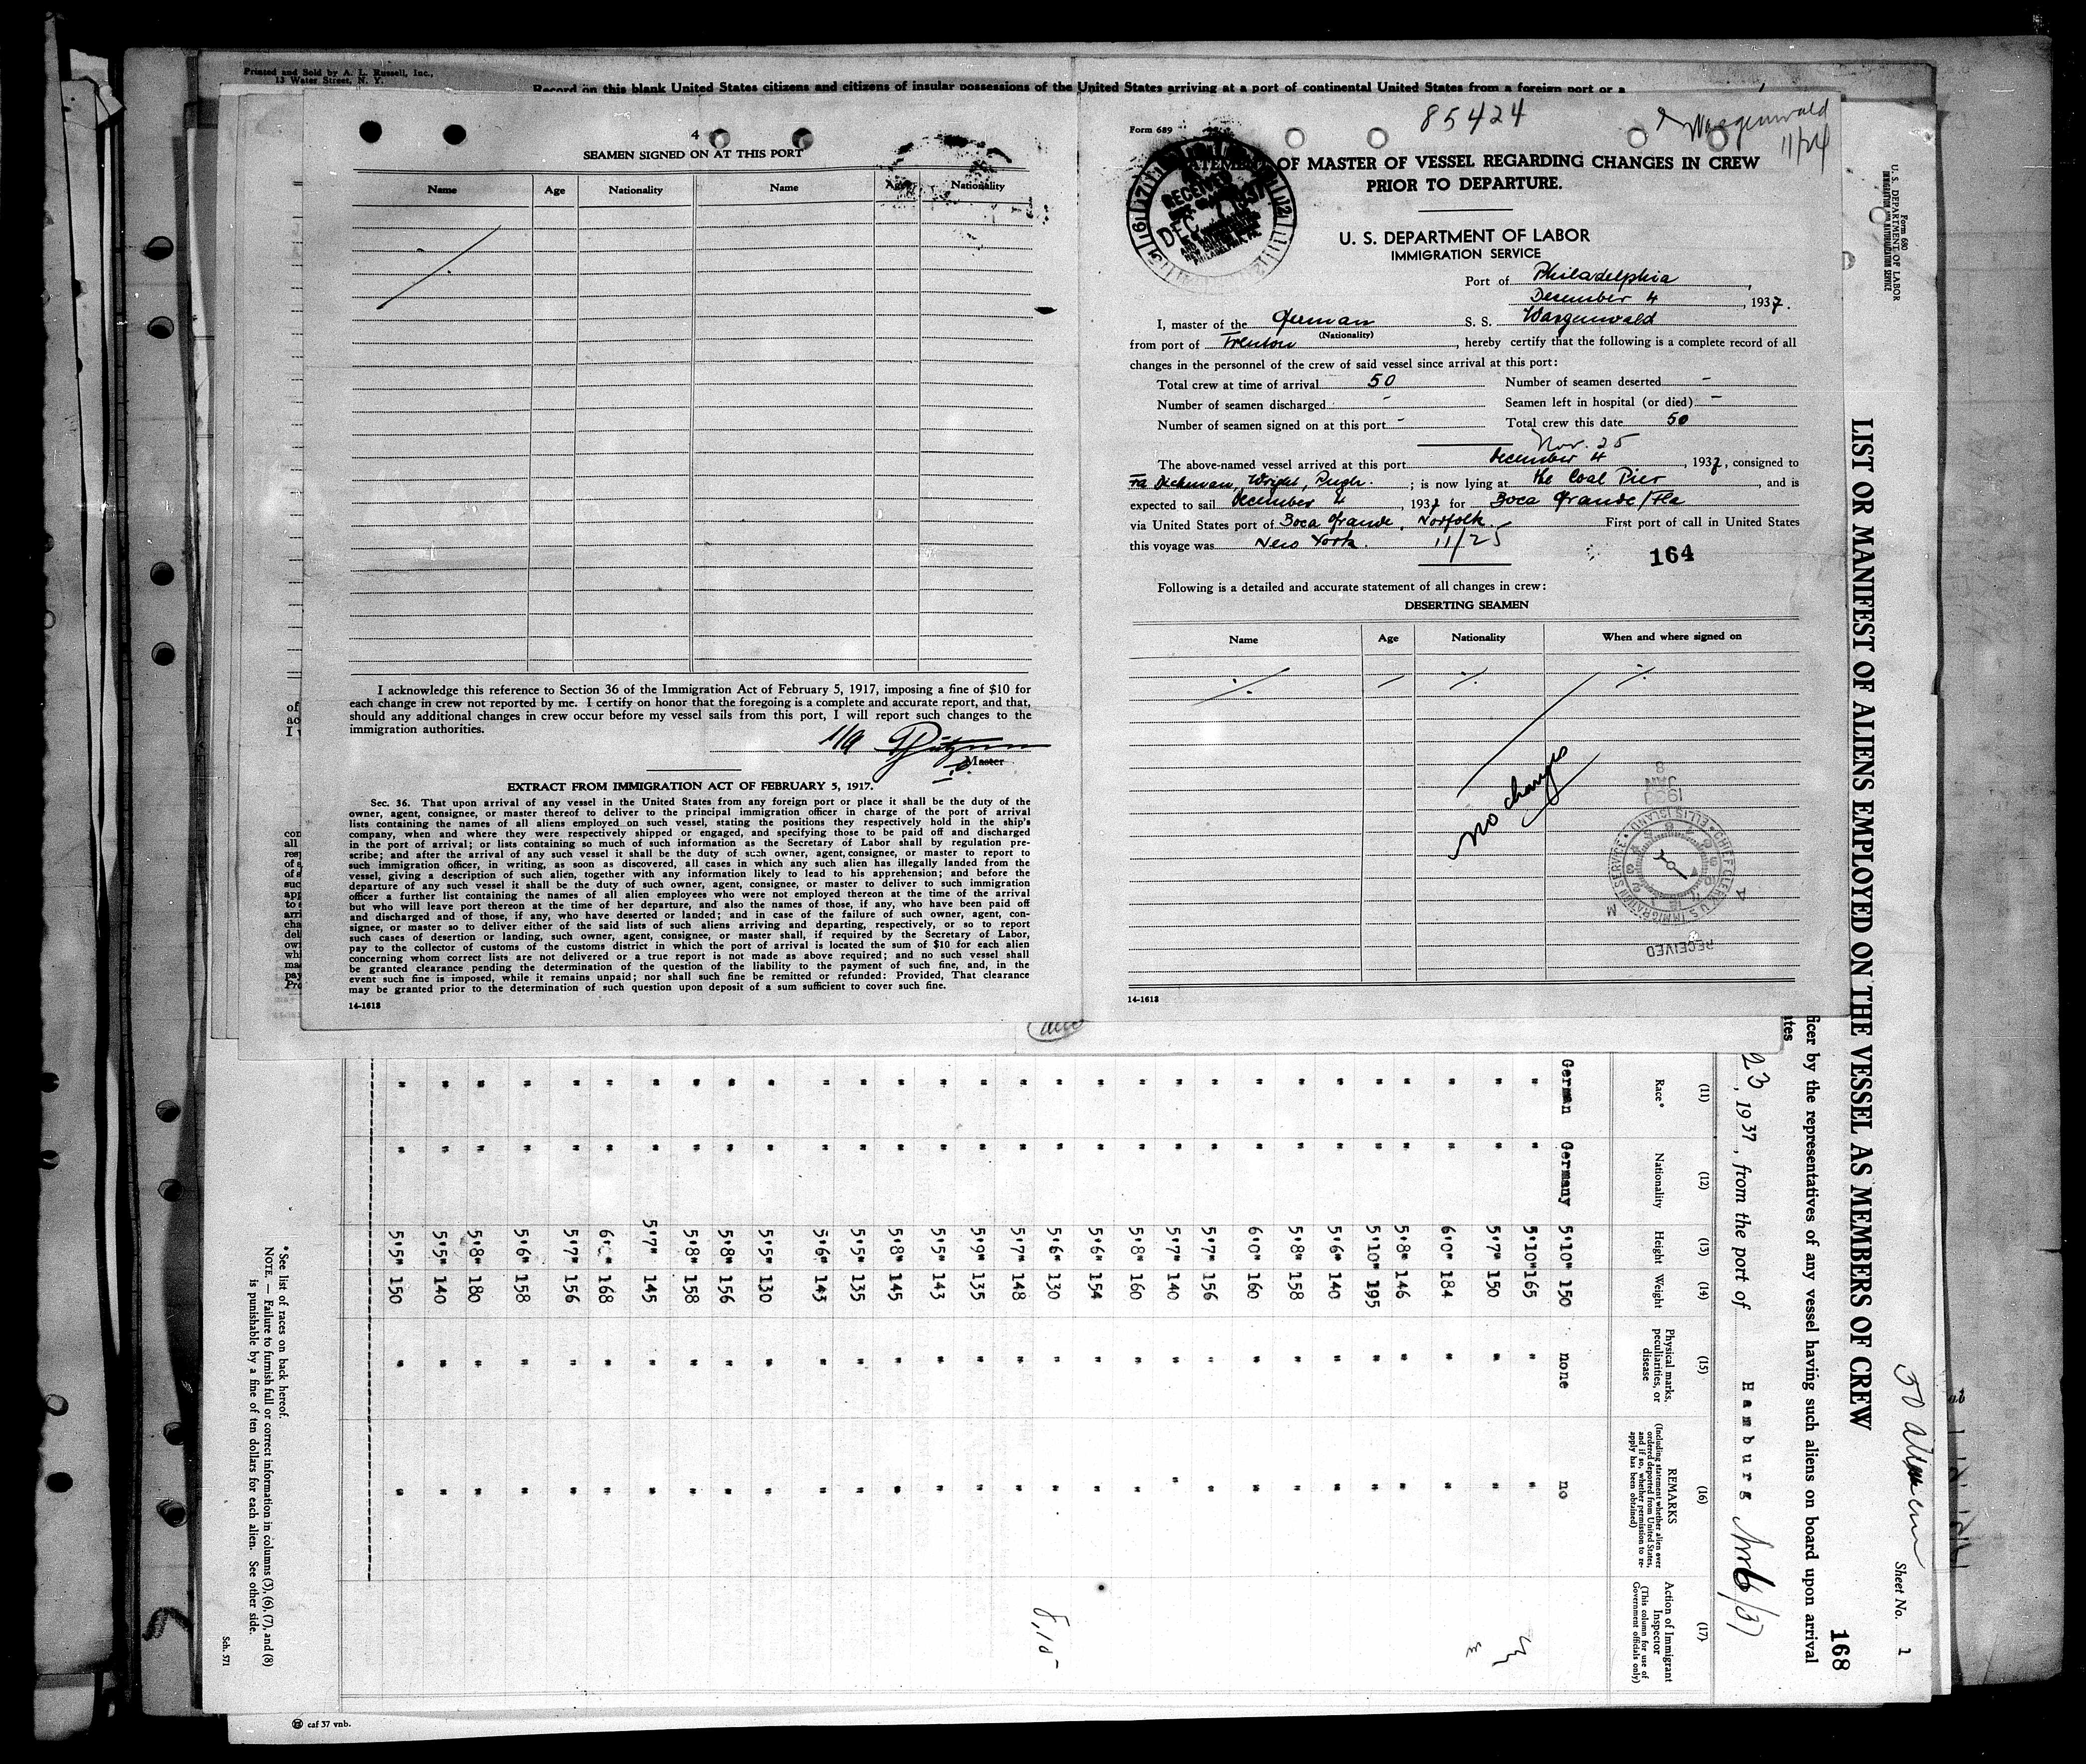 Printed and Sold by A. L. Russell, Inc.,
13 Water Street, N. Y.
Record on this blank United States citizens and citizens of insular possessions of the United States arriving at a port of continental United States from a foreign port or a
4
SEAMEN SIGNED ON AT THIS PORT
Name Age Nationality Name Age Nationality
I acknowledge this reference to Section 36 of the Immigration Act of February 5, 1917, imposing a fine of $10 for
each change in crew not reported by me. I certify on honor that the foregoing is a complete and accurate report, and that,
should any additional changes in crew occur before my vessel sails from this port, I will report such changes to the
immigration authorities.
Master
EXTRACT FROM IMMIGRATION ACT OF FEBRUARY 5, 1917.
Sec. 36. That upon arrival of any vessel in the United States from any foreign port or place it shall be the duty of the
owner, agent, consignee, or master thereof to deliver to the principal immigration officer in charge of the port of arrival
lists containing the names of all aliens employed on such vessel, stating the positions they respectively hold in the ship's
company, when and where they were respectively shipped or engaged, and specifying those to be paid off and discharged
in the port of arrival; or lists containing so much of such information as the Secretary of Labor shall by regulation pre-
scribe; and after the arrival of any such vessel it shall be the duty of such owner, agent, consignee, or master to report to
such immigration officer, in writing, as soon as discovered, all cases in which any such alien has illegally landed from the
vessel, giving a description of such alien, together with any information likely to lead to his apprehension; and before the
departure of any such vessel it shall be the duty of such owner, agent, consignee, or master to deliver to such immigration
officer a further list containing the names of all alien employees who were not employed thereon at the time of the arrival
but who will leave port thereon at the time of her departure, and also the names of those, if any, who have been paid off
and discharged and of those, if any, who have deserted or landed; and in case of the failure of such owner, agent, con-
signee, or master so to deliver either of the said lists of such aliens arriving and departing, respectively, or so to report
such cases of desertion or landing, such owner, agent, consignee, or master shall, if required by the Secretary of Labor,
pay to the collector of customs of the customs district in which the port of arrival is located the sum of $10 for each alien
concerning whom correct lists are not delivered or a true report is not made as above required; and no such vessel shall
be granted clearance pending the determination of the question of the liability to the payment of such fine, and, in the
event such fine is imposed, while it remains unpaid; nor shall such fine be remitted or refunded: Provided, That clearance
may be granted prior to the determination of such question upon deposit of a sum sufficient to cover such fine.
14-1618
Form 689
85424
Wasgenwald
11/24
STATEMENT OF MASTER OF VESSEL REGARDING CHANGES IN CREW
PRIOR TO DEPARTURE.
RECEIVED
DEC 1937
PHILADELPHIA, PA.
U. S. DEPARTMENT OF LABOR
IMMIGRATION SERVICE
Port of Philadelphia,
December 4, 1937.
I, master of the German S. S. Wasgenwald
(Nationality)
from port of Trenton, hereby certify that the following is a complete record of all
changes in the personnel of the crew of said vessel since arrival at this port:
Total crew at time of arrival 50 Number of seamen deserted -
Number of seamen discharged - Seamen left in hospital (or died) -
Number of seamen signed on at this port - Total crew this date 50
Nov. 25
The above-named vessel arrived at this port December 4, 1937, consigned to
Fa Dichman, Wright, Pugh. ; is now lying at the Coal Pier, and is
expected to sail December 4, 1937 for Boca Grande/Fla
via United States port of Boca Grande, Norfolk. First port of call in United States
this voyage was New York. 11/25
164
Following is a detailed and accurate statement of all changes in crew:
DESERTING SEAMEN
Name Age Nationality When and where signed on
no changes
JAN 8
RECEIVED
CHIEF CLERK U. S. IMMIGRATION SERVICE ELLIS ISLAND
14-1618
Form 680
U. S. DEPARTMENT OF LABOR
IMMIGRATION AND NATURALIZATION SERVICE
LIST OR MANIFEST OF ALIENS EMPLOYED ON THE VESSEL AS MEMBERS OF CREW
Sheet No. 1
168
ficer by the representatives of any vessel having such aliens on board upon arrival
tes
23, 1937, from the port of Hamburg
(11) (12) (13) (14) (15) (16) (17)
Race* Nationality Height Weight Physical marks, peculiarities, or disease REMARKS (Including statement whether alien ever ordered deported from United States, and if so, whether permission to re-apply has been obtained) Action of Immigrant Inspector (This column for use of Government officials only)
German Germany 5'10" 150 none no
" " 5'10" 165 " "
" " 5'7" 150 " "
" " 6'0" 184 " "
" " 5'8" 146 " "
" " 5'10" 195 " "
" " 5'6" 140 " "
" " 5'8" 158 " "
" " 6'0" 160 " "
" " 5'7" 156 " "
" " 5'7" 140 " "
" " 5'8" 160 " "
" " 5'6" 154 " "
" " 5'6" 130 " "
" " 5'7" 148 " "
" " 5'9" 135 " "
" " 5'5" 143 " "
" " 5'8" 145 " "
" " 5'5" 135 " "
" " 5'6" 143 " "
" " 5'5" 130 " "
" " 5'8" 156 " "
" " 5'8" 158 " "
" " 5'7" 145 " "
" " 168 " "
" " 5'7" 156 " "
" " 5'6" 158 " "
" " 5'8" 180 " "
" " 5'5" 140 " "
" " 5'5" 150 " "
* See list of races on back hereof.
NOTE. — Failure to furnish full or correct information in columns (3), (6), (7), and (8)
is punishable by a fine of ten dollars for each alien. See other side.
Sch. 571
caf 37 vnb.